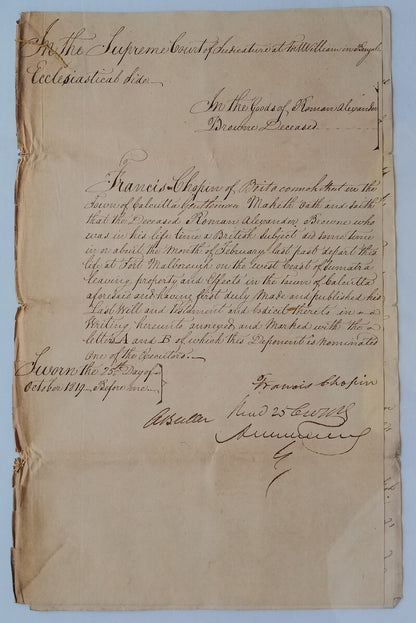 In the Supreme Court of Judicature at Fort William in Bengal
Ecclesiastical Side.
In the Goods of Roman Alexander
Browne Deceased
Francis Chopin of in the
Town of Calcutta Gentleman Maketh Oath and saith
that the Deceased Roman Alexander Browne who
was in his life time a British subject did some time
in or about the Month of February last past depart this
life at Fort Malborough on the West Coast of Sumatra
leaving property and Effects in the town of Calcutta
aforesaid and having first duly Made and published his
Last Will and Testament and Codicil thereto in
Writing hereunto annexed and Marked with the
letters A and B of which this Deponent is Nominated
one of the Executors.
Sworn the 25th Day of
October 1819 Before me
Francis Chopin
25